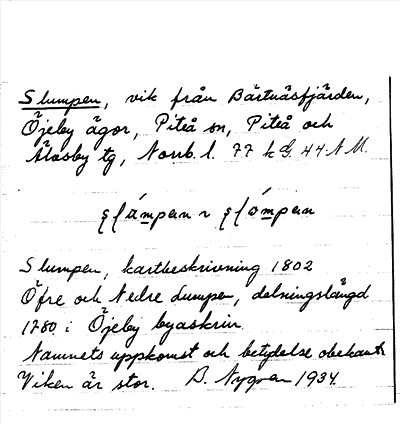 Slumpen, vik från Bärtnäsfjärden,
Öjeby ägor, Piteå sn, Piteå och
Älvsby tg, Norrb. l. 77 k G. 44 N M.
Slumpen, kartbeskrivning 1802
Öfre och Nedre Lumpen, delningslängd
1780 i Öjeby byaskrin.
Namnets uppkomst och betydelse obekant
Viken är stor. B. Nygren 1934.